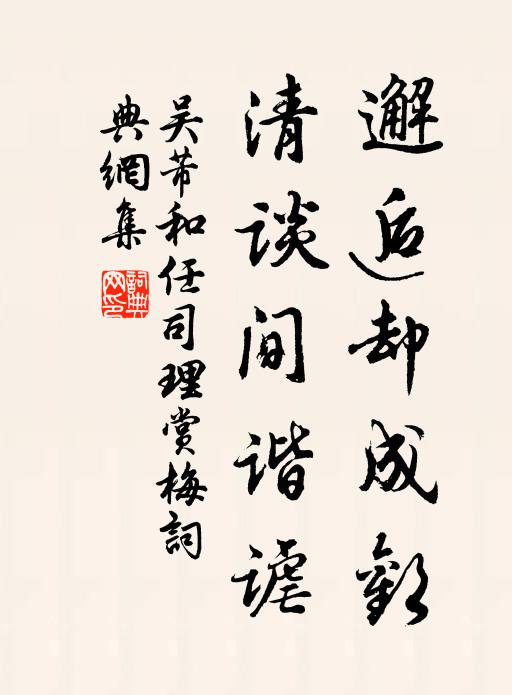 邂逅却成歡
清談间谐谑
吴芾和任司理赏梅詞
典網集
詞典
网印